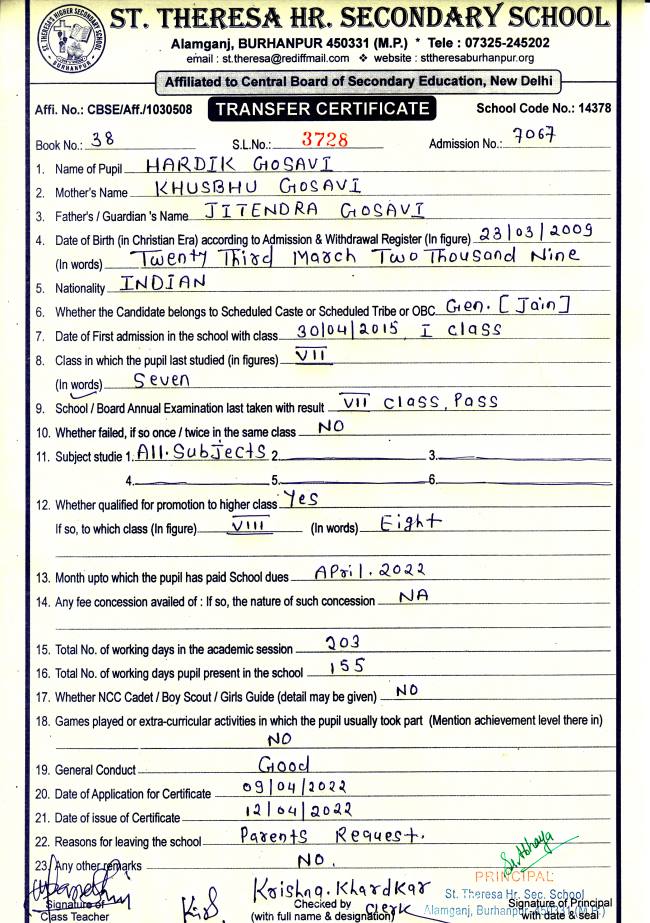 ST. THERESA HR. SECONDARY SCHOOL
Alamganj, BURHANPUR 450331 (M.P.) * Tele : 07325-245202
email : st.theresa@rediffmail.com ❖ website : sttheresaburhanpur.org
Affiliated to Central Board of Secondary Education, New Delhi
Affi. No.: CBSE/Aff./1030508 TRANSFER CERTIFICATE School Code No.: 14378
Book No.: 38 S.L.No.: 3728 Admission No.: 7067
1. Name of Pupil HARDIK GOSAVI
2. Mother's Name KHUSBHU GOSAVI
3. Father's / Guardian 's Name JITENDRA GOSAVI
4. Date of Birth (in Christian Era) according to Admission & Withdrawal Register (In figure) 23/03/2009
(In words) Twenty Third March Two Thousand Nine
5. Nationality INDIAN
6. Whether the Candidate belongs to Scheduled Caste or Scheduled Tribe or OBC Gen. [Jain]
7. Date of First admission in the school with class 30/04/2015, I class
8. Class in which the pupil last studied (in figures) VII
(In words) Seven
9. School / Board Annual Examination last taken with result VII class, Pass
10. Whether failed, if so once / twice in the same class NO
11. Subject studie 1. All. Subjects 2. 3.
4. 5. 6.
12. Whether qualified for promotion to higher class Yes
If so, to which class (In figure) VIII (In words) Eight
13. Month upto which the pupil has paid School dues April. 2022
14. Any fee concession availed of : If so, the nature of such concession NA
15. Total No. of working days in the academic session 203
16. Total No. of working days pupil present in the school 155
17. Whether NCC Cadet / Boy Scout / Girls Guide (detail may be given) NO
18. Games played or extra-curricular activities in which the pupil usually took part (Mention achievement level there in)
NO
19. General Conduct Good
20. Date of Application for Certificate 09/04/2022
21. Date of issue of Certificate 12/04/2022
22. Reasons for leaving the school Parents Request.
23. Any other remarks NO.
PRINCIPAL
Krishna. Khardkar
St. Theresa Hr. Sec. School
Signature of Class Teacher
Checked by
(with full name & designation) Clerk
Alamganj, Burhanpur-450331 (M.P.)
Signature of Principal
with date & seal